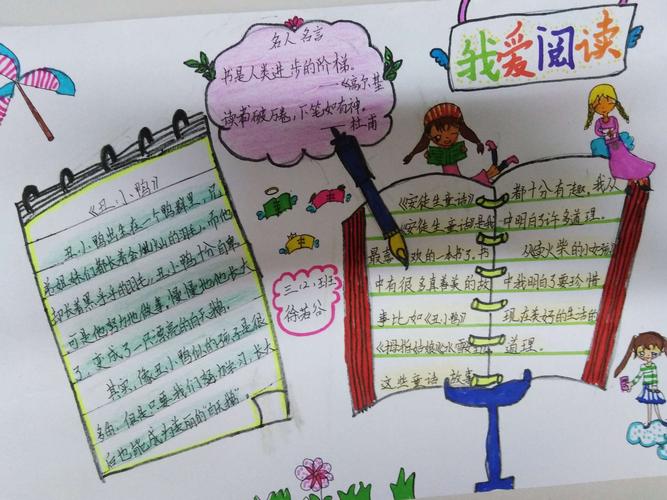 我爱阅读
名人名言
书是人类进步的阶梯。
——《高尔基
读书破万卷，下笔如有神。
——杜甫
《丑小鸭》
丑小鸭出生在一个鸭群里，兄
弟姐妹们都长着金灿灿的羽毛，而他
却长着黑乎乎的羽毛，丑小鸭十分自卑
可是他努力地做事，慢慢地他长大
了，变成了一只漂亮的白天鹅。
其实，像丑小鸭似的孩子是很
多的，但是只要我们努力学习，长大
后也能成为美丽的“白天鹅”
三.(2)班
徐若谷
《安徒生童话》
《安徒生童话》是我
最喜欢的一本书了，书
中有很多真善美的故
事比如《丑小鸭》
《拇指姑娘》《冰雪
这些童话故事
都十分有趣，我从
中明白了许多道理。
从《卖火柴的小女孩》
中我明白了要珍惜
现在美好的生活的
道理。